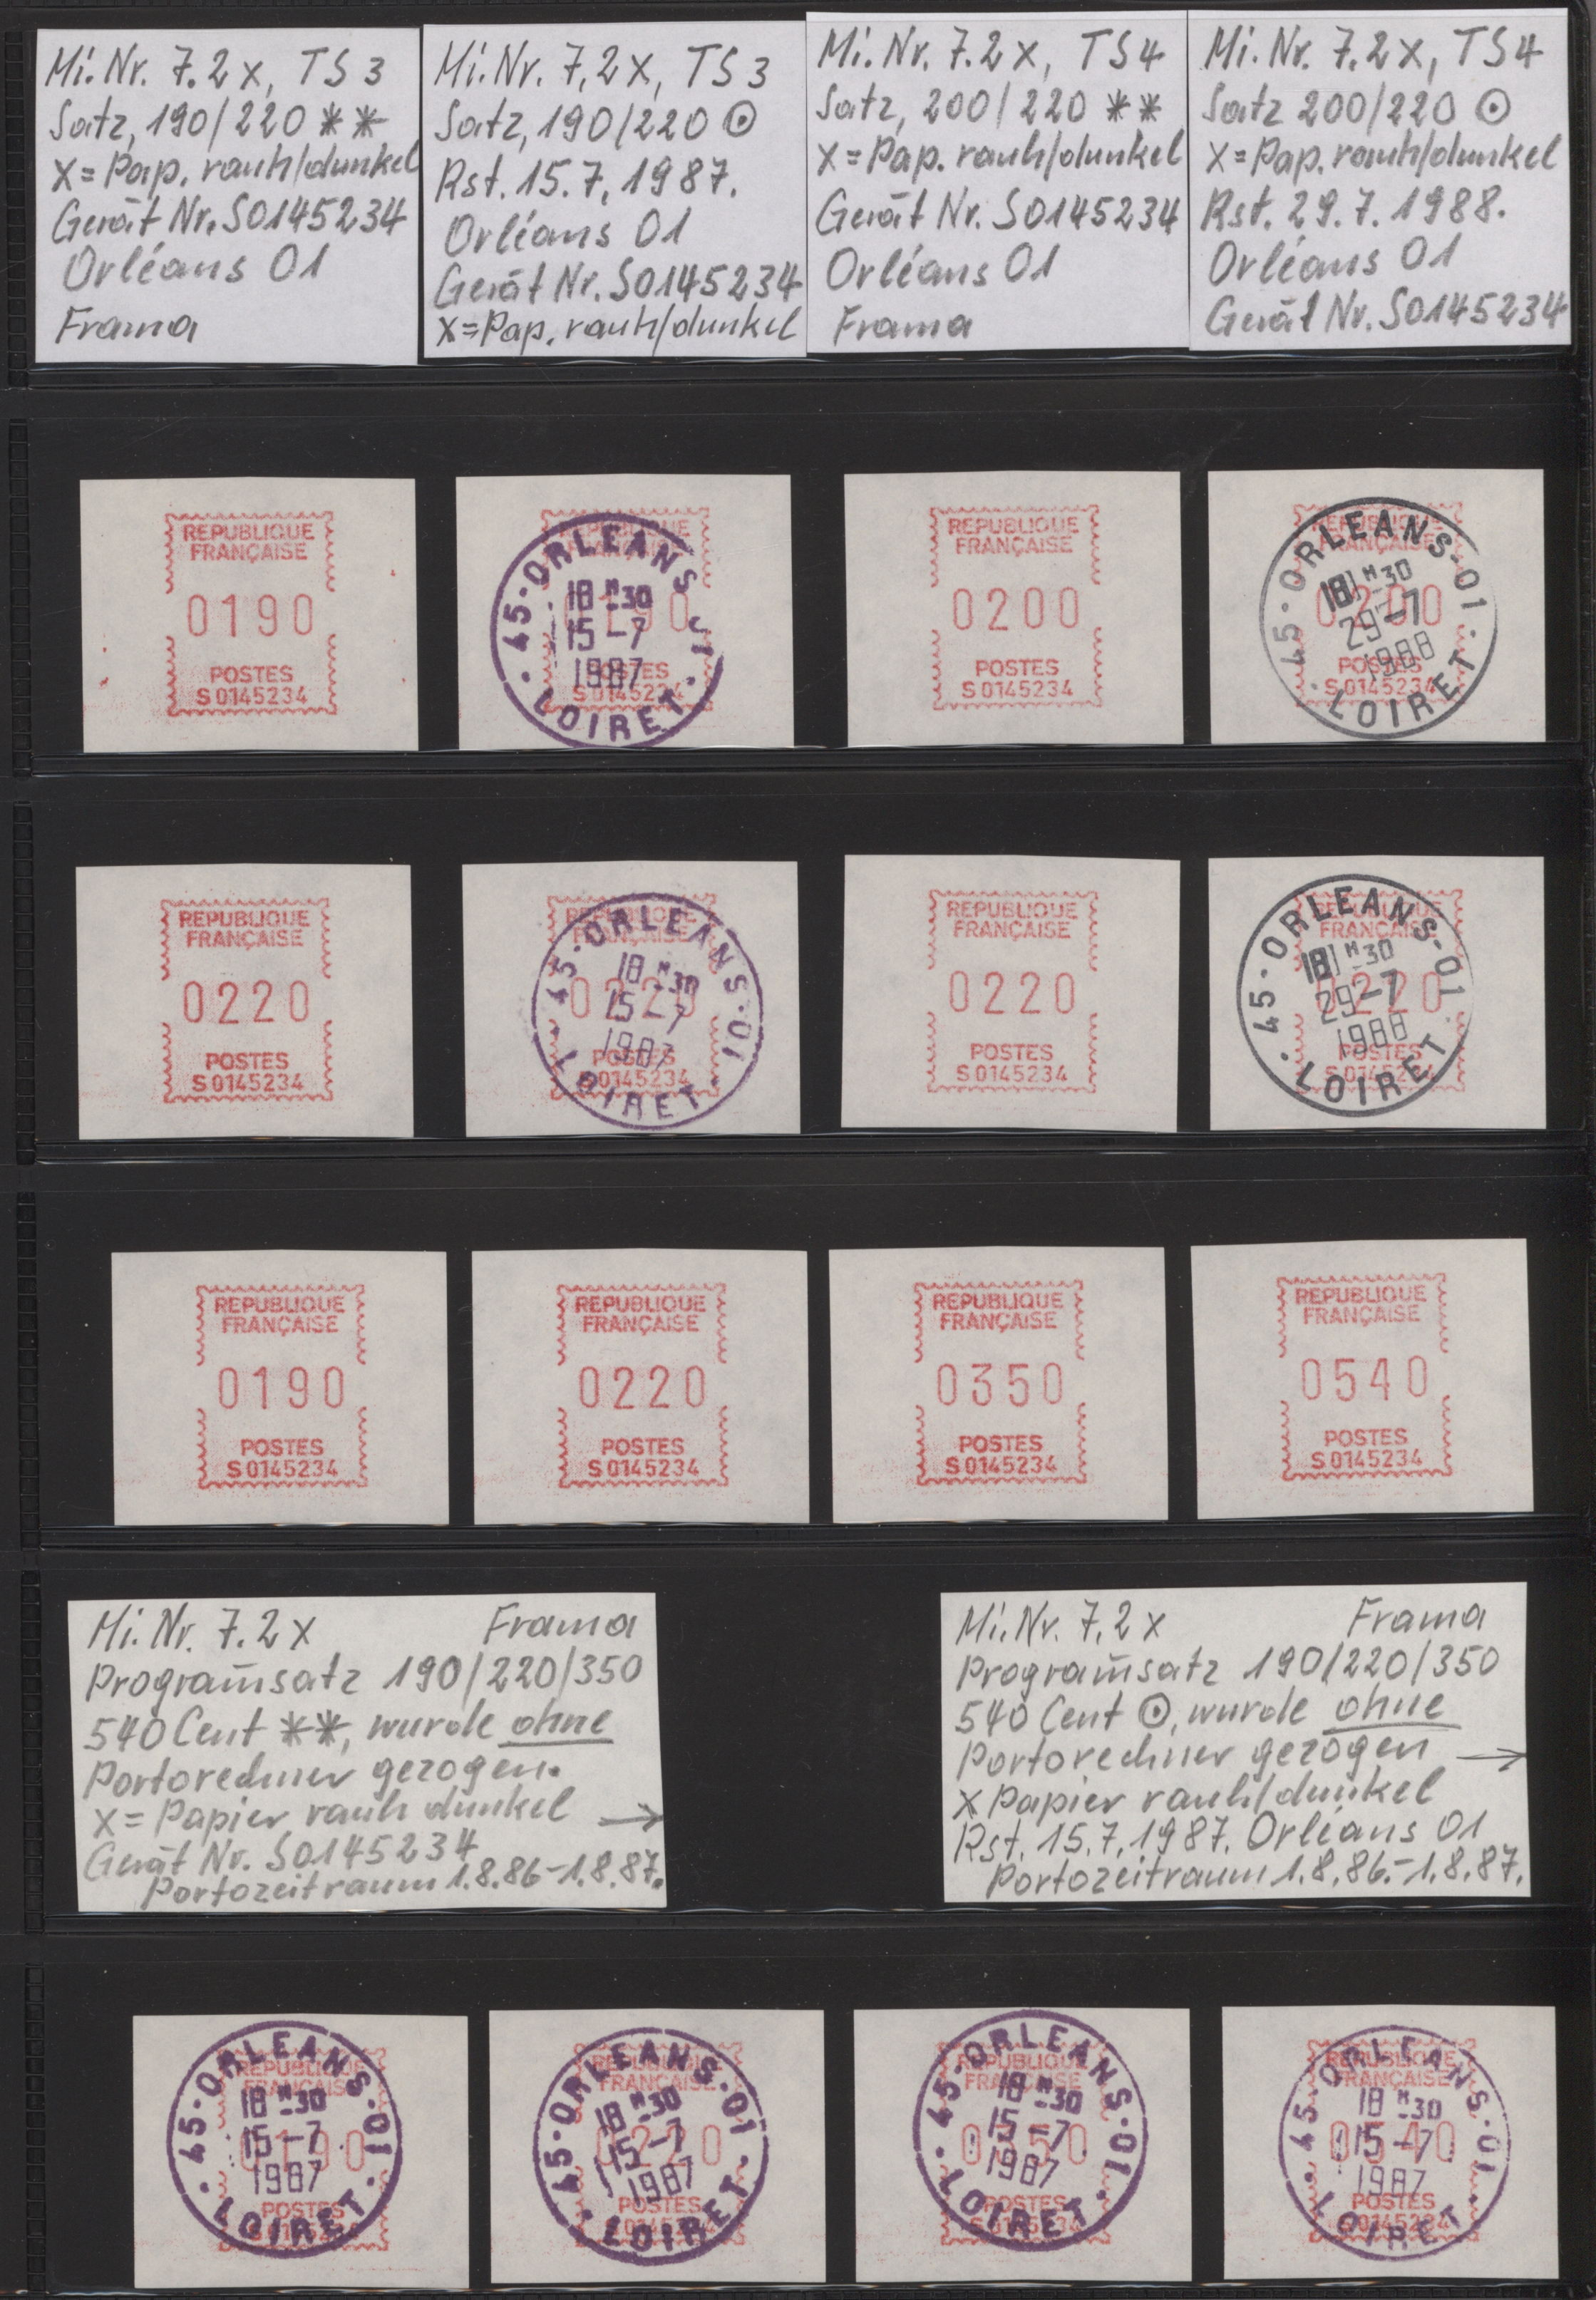 Mi. Nr. 7.2x, TS 3
Satz, 190/220 **
x = Pap. rauh/dunkel
Gerät Nr. S0145234
Orléans 01
Frama
Mi. Nr. 7,2x, TS 3
Satz, 190/220 ⊙
Rst. 15.7.1987.
Orléans 01
Gerät Nr. S0145234
x=Pap. rauh/dunkel
Mi. Nr. 7.2x, TS4
Satz, 200/220 **
x = Pap. rauh/dunkel
Gerät Nr. S0145234
Orléans 01
Frama
Mi. Nr. 7.2x, TS4
Satz 200/220 ⊙
x = Pap. rauh/dunkel
Rst. 29.7.1988.
Orléans 01
Gerät Nr. S0145234
REPUBLIQUE
FRANÇAISE
0190
POSTES
S 0145234
45·ORLEANS
18 H 30
15-7
1987
LOIRET
POSTES
S 0145234
REPUBLIQUE
FRANÇAISE
0200
POSTES
S 0145234
REPUBLIQUE
FRANÇAISE
45·ORLEANS·01
18 H 30
29-7
1988
0200
POSTES
S 0145234
LOIRET
REPUBLIQUE
FRANÇAISE
0220
POSTES
S 0145234
REPUBLIQUE
FRANÇAISE
45·ORLEANS·01
18 H 30
15-7
1987
0220
POSTES
S 0145234
LOIRET
REPUBLIQUE
FRANÇAISE
0220
POSTES
S 0145234
REPUBLIQUE
FRANÇAISE
45·ORLEANS·01
18 H 30
29-7
1988
0220
POSTES
S 0145234
LOIRET
REPUBLIQUE
FRANÇAISE
0190
POSTES
S 0145234
REPUBLIQUE
FRANÇAISE
0220
POSTES
S 0145234
REPUBLIQUE
FRANÇAISE
0350
POSTES
S 0145234
REPUBLIQUE
FRANÇAISE
0540
POSTES
S 0145234
Mi. Nr. 7.2x Frama
Programm̄satz 190/220/350
540 Cent **, wurde ohne
Portorechner gezogen.
x = Papier rauh dunkel →
Gerät Nr. S0145234
Portozeitraum 1.8.86-1.8.87.
Mi. Nr. 7,2x Frama
Programm̄satz 190/220/350
540 Cent ⊙, wurde ohne
Portorechner gezogen →
x Papier rauh/dunkel
Rst. 15.7.1987. Orléans 01
Portozeitraum 1.8.86.-1.8.87.
REPUBLIQUE
FRANÇAISE
45·ORLEANS·01
18 H 30
15-7
1987
0190
POSTES
LOIRET
REPUBLIQUE
FRANÇAISE
45·ORLEANS·01
18 H 30
15-7
1987
0220
POSTES
LOIRET
REPUBLIQUE
FRANÇAISE
45·ORLEANS·01
18 H 30
15-7
1987
0350
POSTES
LOIRET
REPUBLIQUE
FRANÇAISE
45·ORLEANS·01
18 H 30
15-7
1987
0540
POSTES
S 0145234
LOIRET